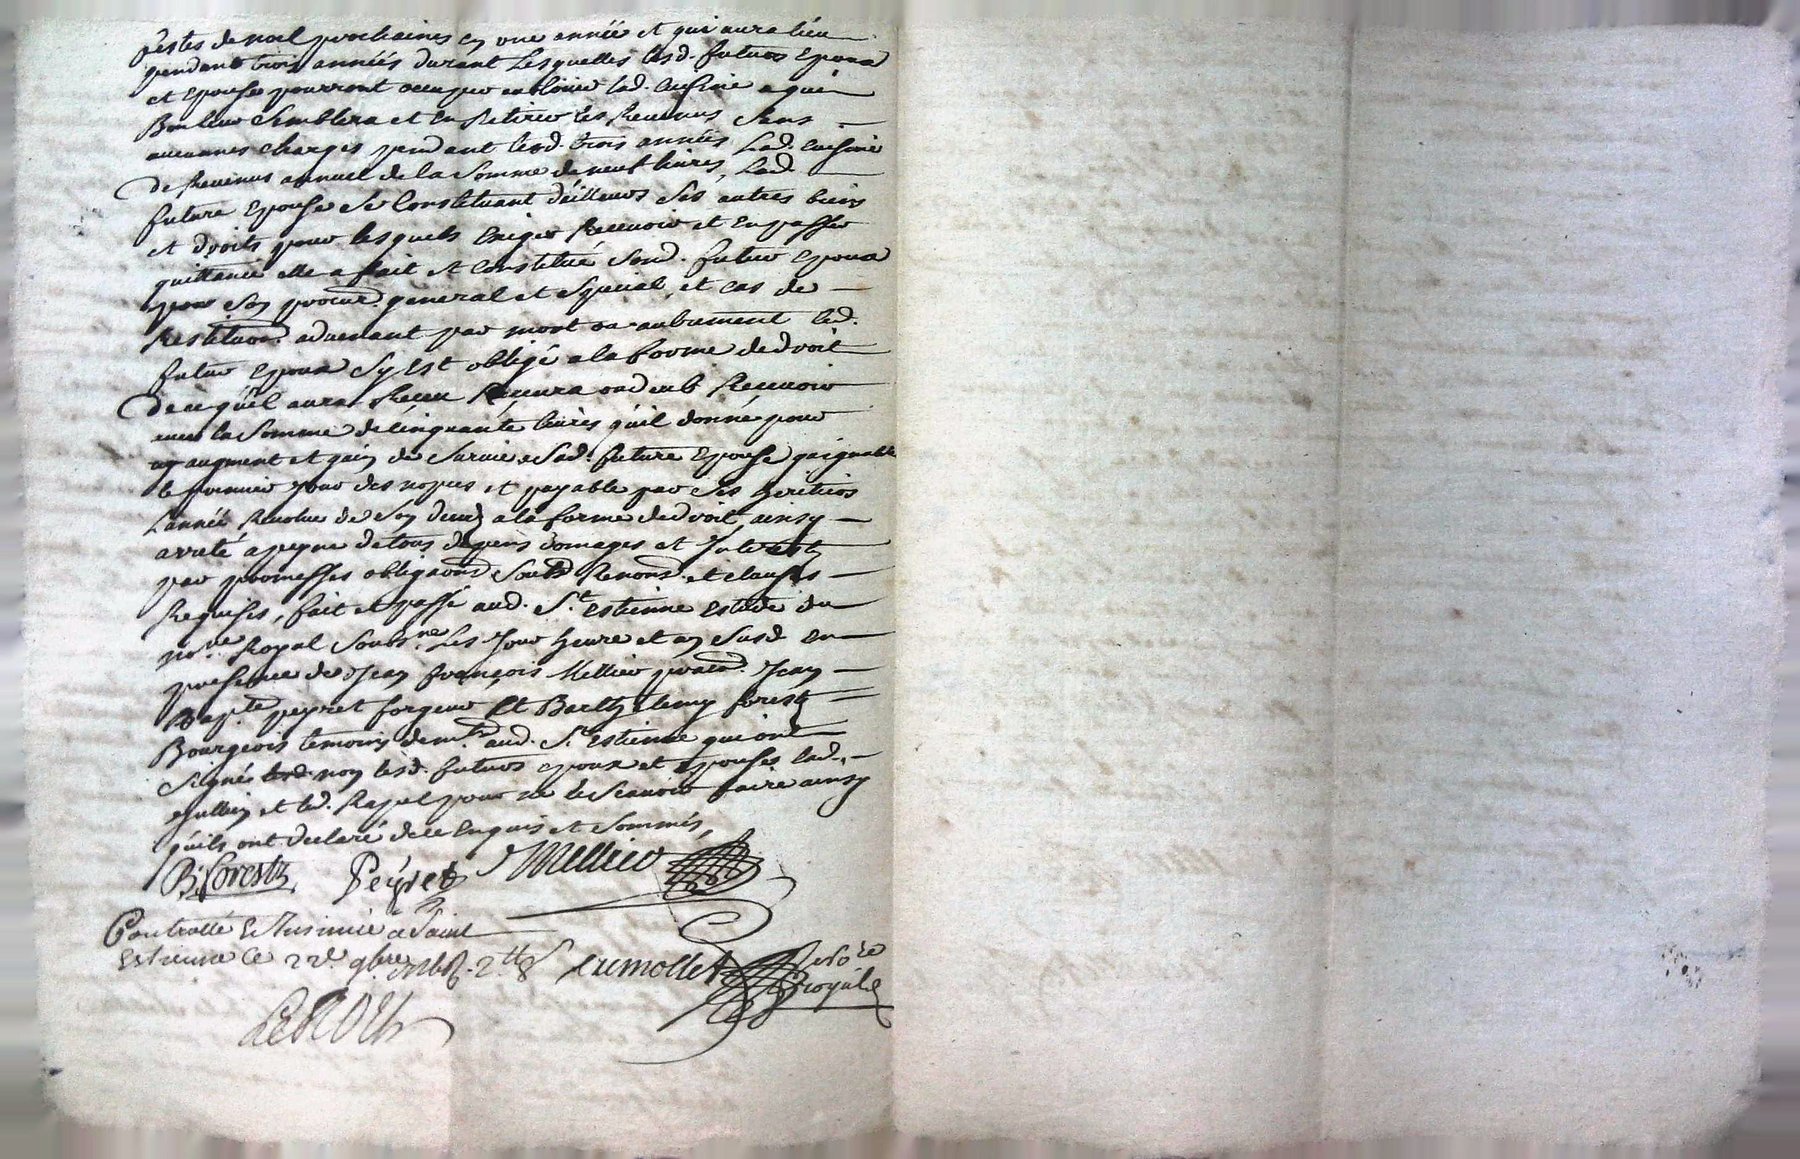 festes de noel prochaines en une année et qui aura lieu
pendant trois années durant lesquelles lesd. futurs epoux
et epouse pourront occuper ou loüer lad. cuisine a qui
Bon leur semblera et en Retirer les Revenus sans
aucunes charges pendant lesd. trois années Lad. cuisine
de Revenus annuel de la somme de neuf livres, Lad.
future epouse se Constituant d'ailleurs ses autres biens
et droits pour lesquels Exiger Recevoir et en passer
quittance elle a fait et Constitué sond. futur epoux
pour son procur. general et special, et cas de
Restituon. advenant par mort ou autrement led.
futur epoux sy est obligé a la forme de droit
de ce qu'il aura Receu Recevra ou deub Recevoir
avec la somme de cinquante livres qu'il donne pour
augment et gain de survie a sad. future epouse gaignable
le premier jour des nopces et payable par ses heritiers
L'année Revolue de son deuil a la forme de droit, ainsy
arreté a peyne de tous depens domages et Interests
par promesses obligaons soubs Renons. et clauses
Requises, fait et passé aud. St. estienne estude du
nore. Royal soubsne. Les Jour heure et an susd. en
presence de Jean françois Mellier pratn. Jean
Bapte. peyret forgeur Et Barthelemy forest
Bourgeois temoins demts. aud. St. estienne qui ont
signé non lesd. futurs epoux et epouses lad.
Jullien et led. pour ne le scavoir faire ainsy
qu'ils ont declaré de ce Enquis et sommés,
B. forest Peyret Mellier
Controllé et Insinué a Saint
Estienne Ce 22e. 9bre